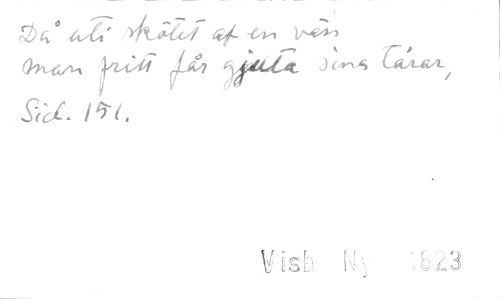 Då uti skötet af en vän
man fritt får gjuta sina tårar,
Sid. 151.
Visb Ny 1823